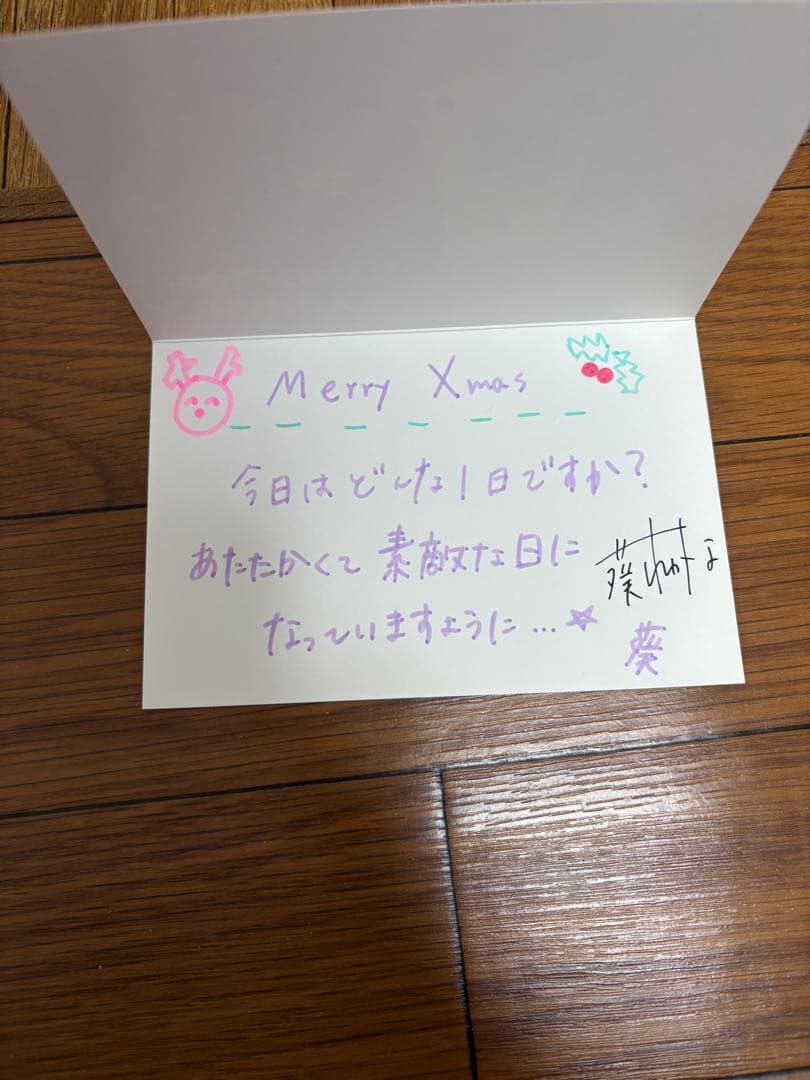 Merry Xmas
今日はどんな1日ですか?
あたたかくて素敵な日に
なっていますように…☆
葵わかな
葵